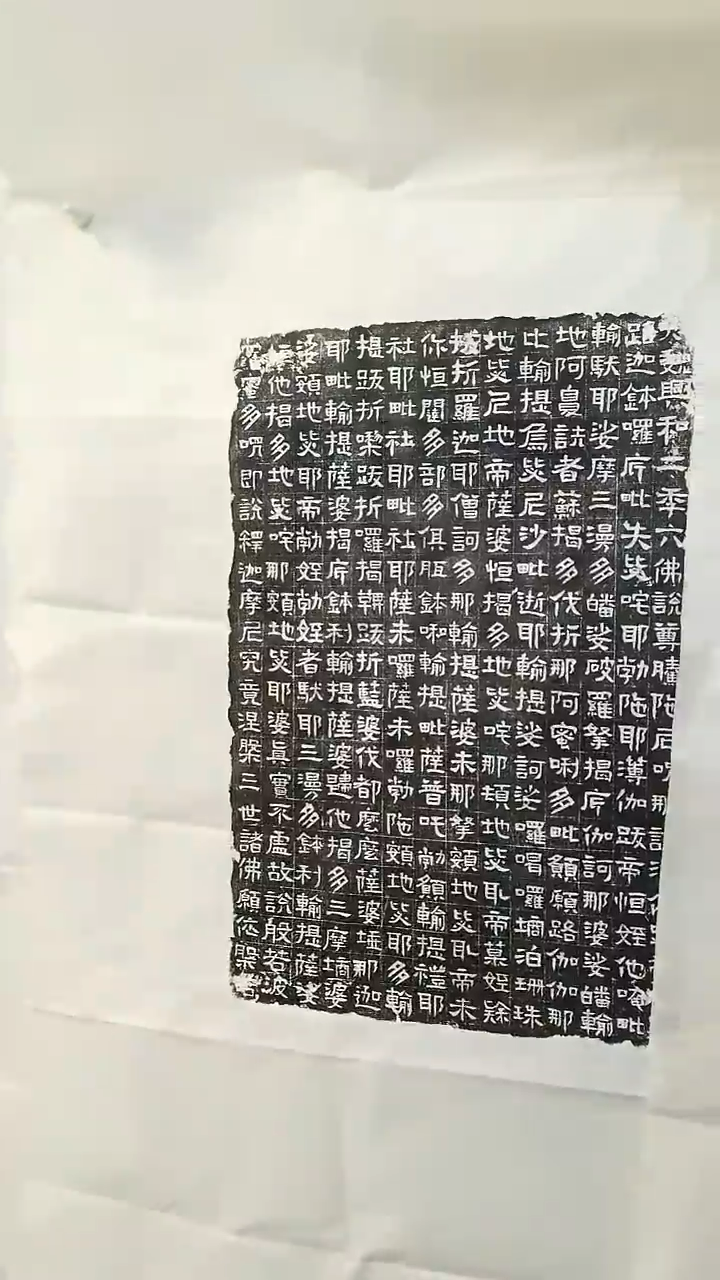 大魏興和二季六佛說尊勝陁
路迦鉢囉底毗失瓫咤耶勃陁耶薄伽跋帝恒姪他唵毗
輸馱耶娑摩三漫多皤娑破羅拏揭底伽訶那婆娑皤輸
地阿鼻詵者蘇揭多伐折那阿蜜唎多毗願路伽伽那
比輸提烏瓫尼沙毗逝耶輸提娑訶娑囉唱囉墒泊珊珠
地瓫尼地帝薩婆恒揭多地瓫咤那頞地瓫耴帝慕姪
折羅迦耶僧訶多那輸提薩婆未那拏頞地瓫耴帝未
你恒闥多部多俱胝鉢唎輸提毗薩普吒勃願輸提禮耶
社耶毗社耶毗社耶薩未囉薩未囉勃陁頞地瓫耶多輸
揭跋折㘑跋折囉揭鞞跋折藍婆伐都麼麼薩婆墟那迦
耶毗輸提薩婆揭底鉢利輸提薩婆他揭多三摩墒婆
頞地瓫耶帝勃姪勃姪者馱耶三漫多鉢利輸提薩婆
他揭多地瓫咤那頞地瓫耶婆真實不虛故說般若波
蜜多呪即說釋迦摩尼究竟涅槃三世諸佛願依槃